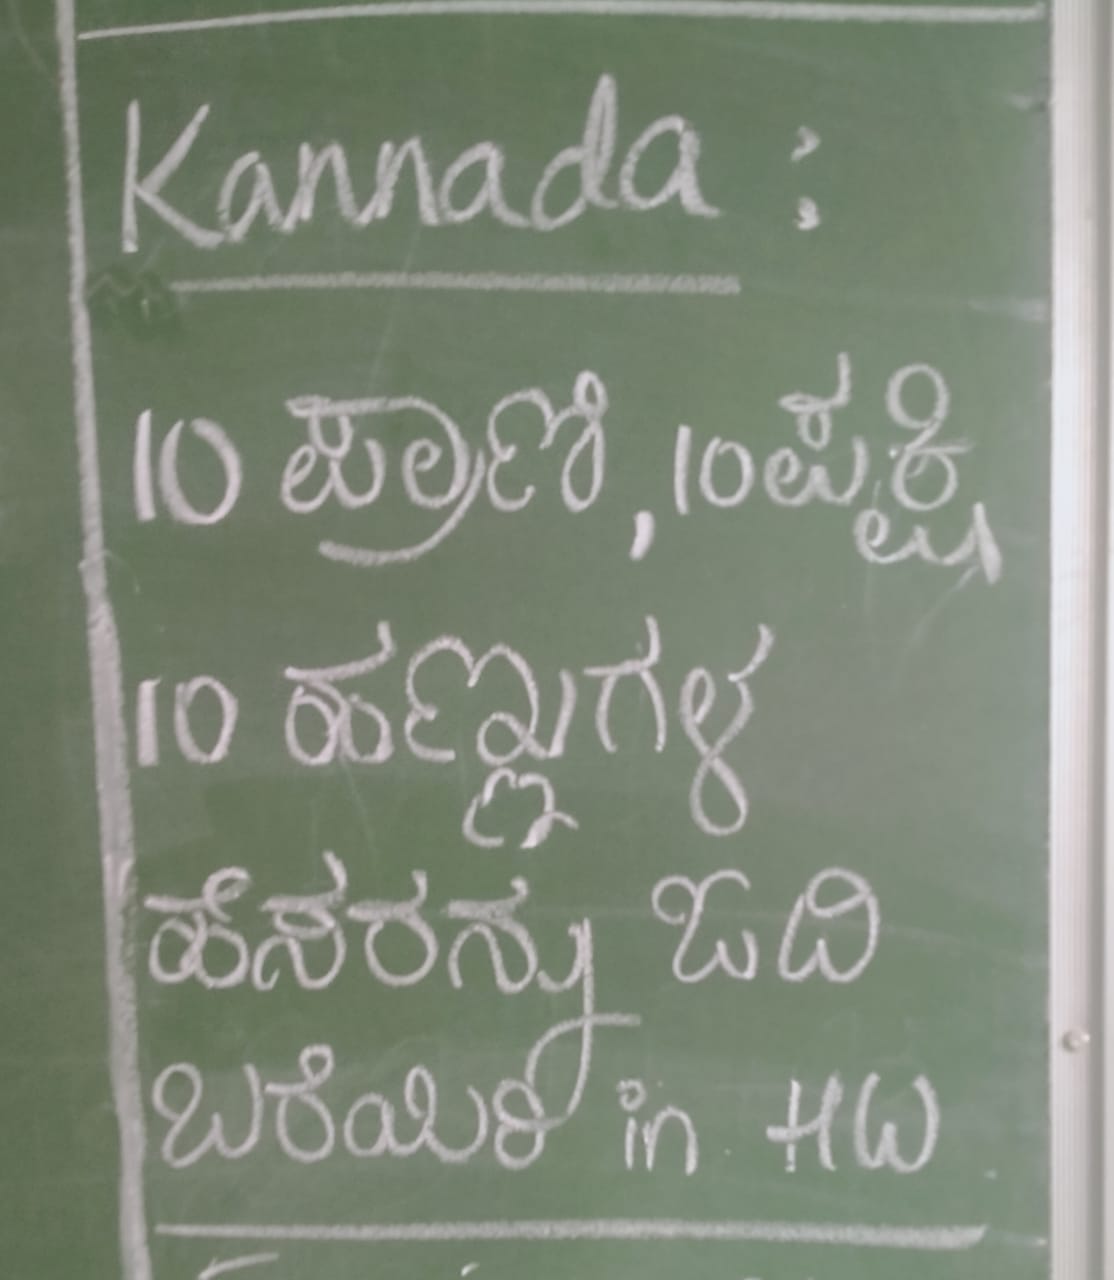 Kannada :
10 ಪ್ರಾಣಿ, 10 ಪಕ್ಷಿ
10 ಹಣ್ಣುಗಳ
ಹೆಸರನ್ನು ಓದಿ
ಬರೆಯಿರಿ in HW